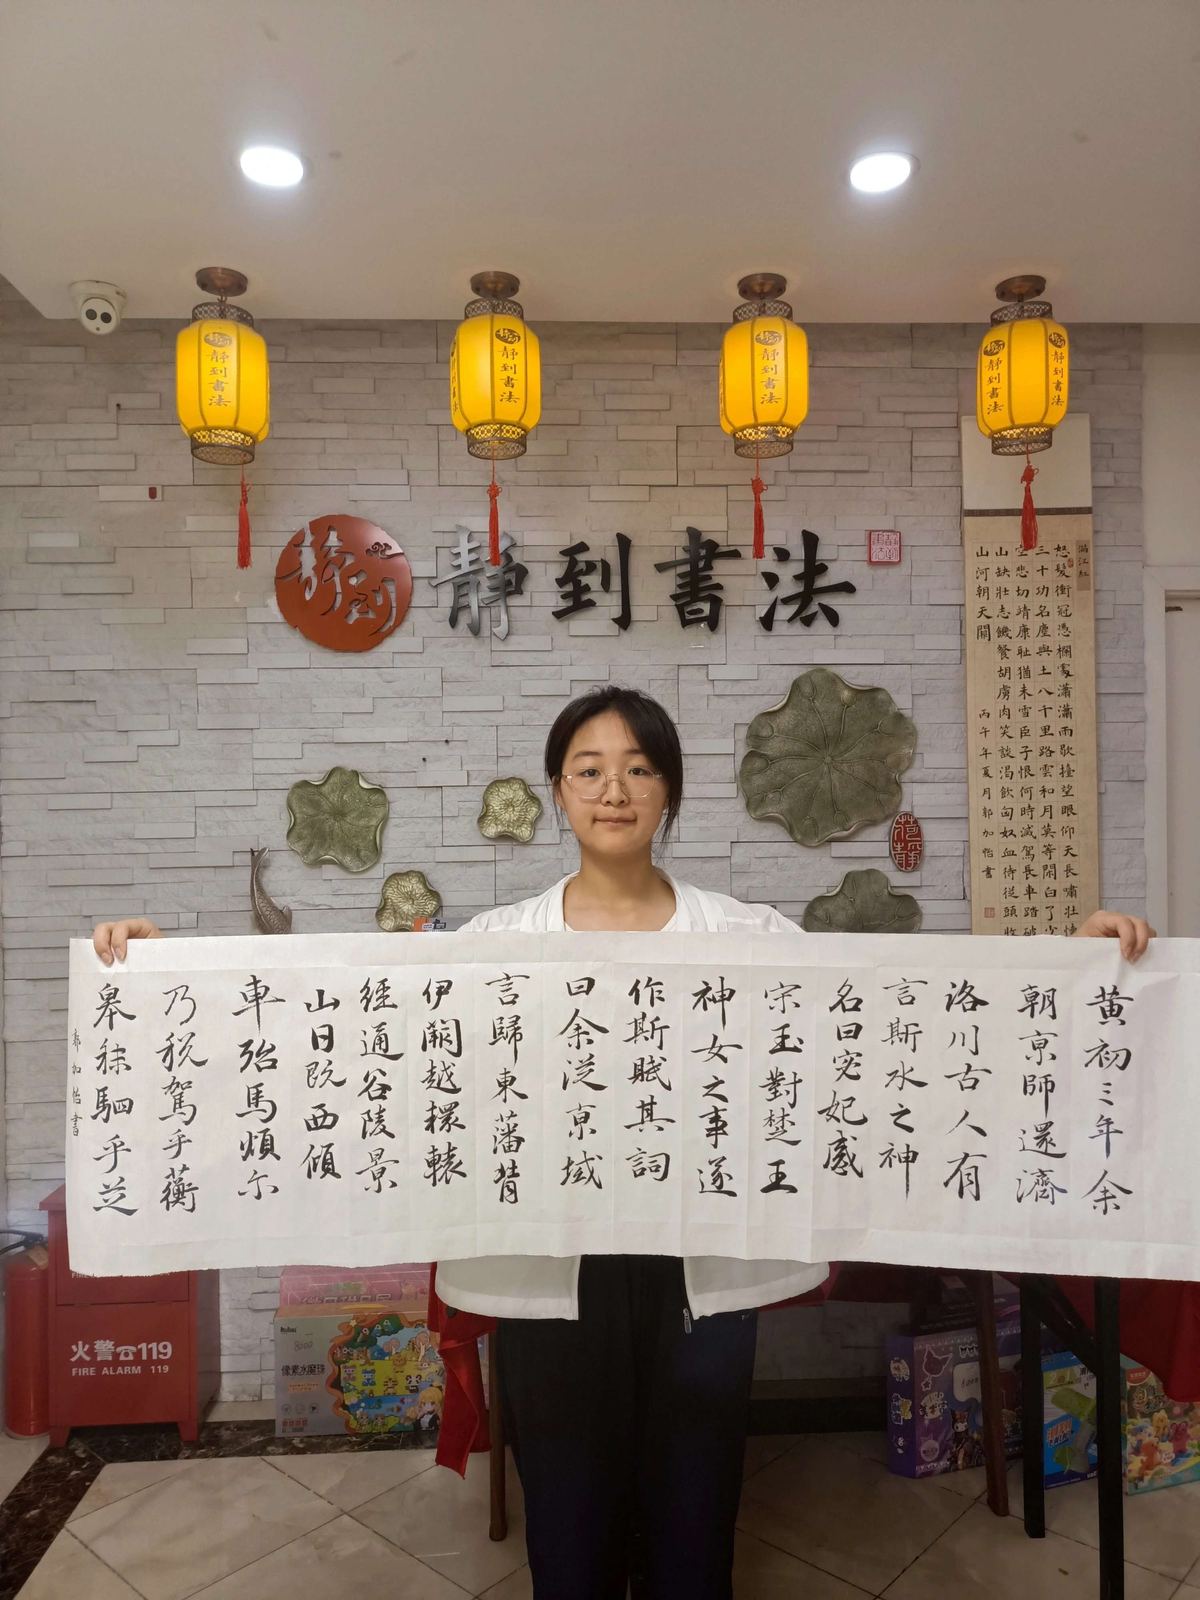 静到書法
静到書法
静到書法
静到書法
静到書法
静到
静到書法
滿江紅
怒髮衝冠憑欄處瀟瀟雨歇擡望眼仰天長嘯壯懷
三十功名塵與土八千里路雲和月莫等閒白了少
空悲切靖康耻猶未雪臣子恨何時滅駕長車踏破
山缺壯志饑餐胡虜肉笑談渴飲匈奴血待從頭收
山河朝天闕
丙午年夏月郭加怡書
荷静
黄初三年余
朝京師還濟
洛川古人有
言斯水之神
名曰宓妃感
宋玉對楚王
神女之事遂
作斯賦其詞
曰余從京域
言歸東藩背
伊闕越轘轅
經通谷陵景
山日既西傾
車殆馬煩尒
乃税駕乎蘅
皋秣駟乎芝
郭加怡書
火警☎119
FIRE ALARM 119
8000
像素水魔珠